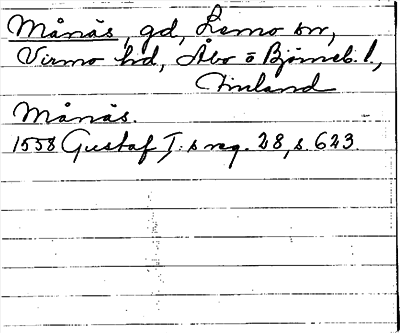 Månäs, gd, Lemo sn,
Virmo hd, Åbo o Björneb. l.,
Finland
Månäs.
1558 Gustaf I:s reg. 28, s. 623.